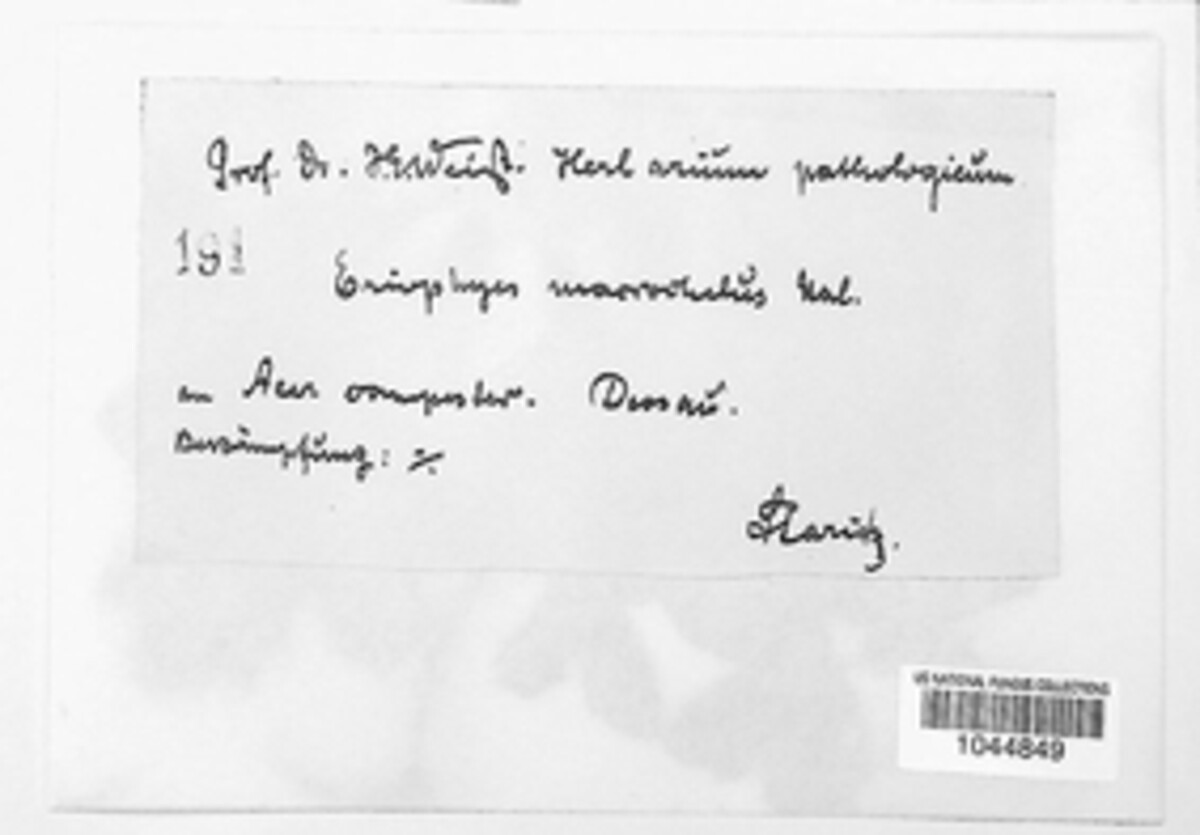 Prof. Dr. J.E. Weiß. Herbarium pathologicum
191
Eriophyes macrochelus Nal.
an Acer campester. Dessau.
Bekämpfung: ∻
Staritz.
US NATIONAL FUNGUS COLLECTIONS
1044849